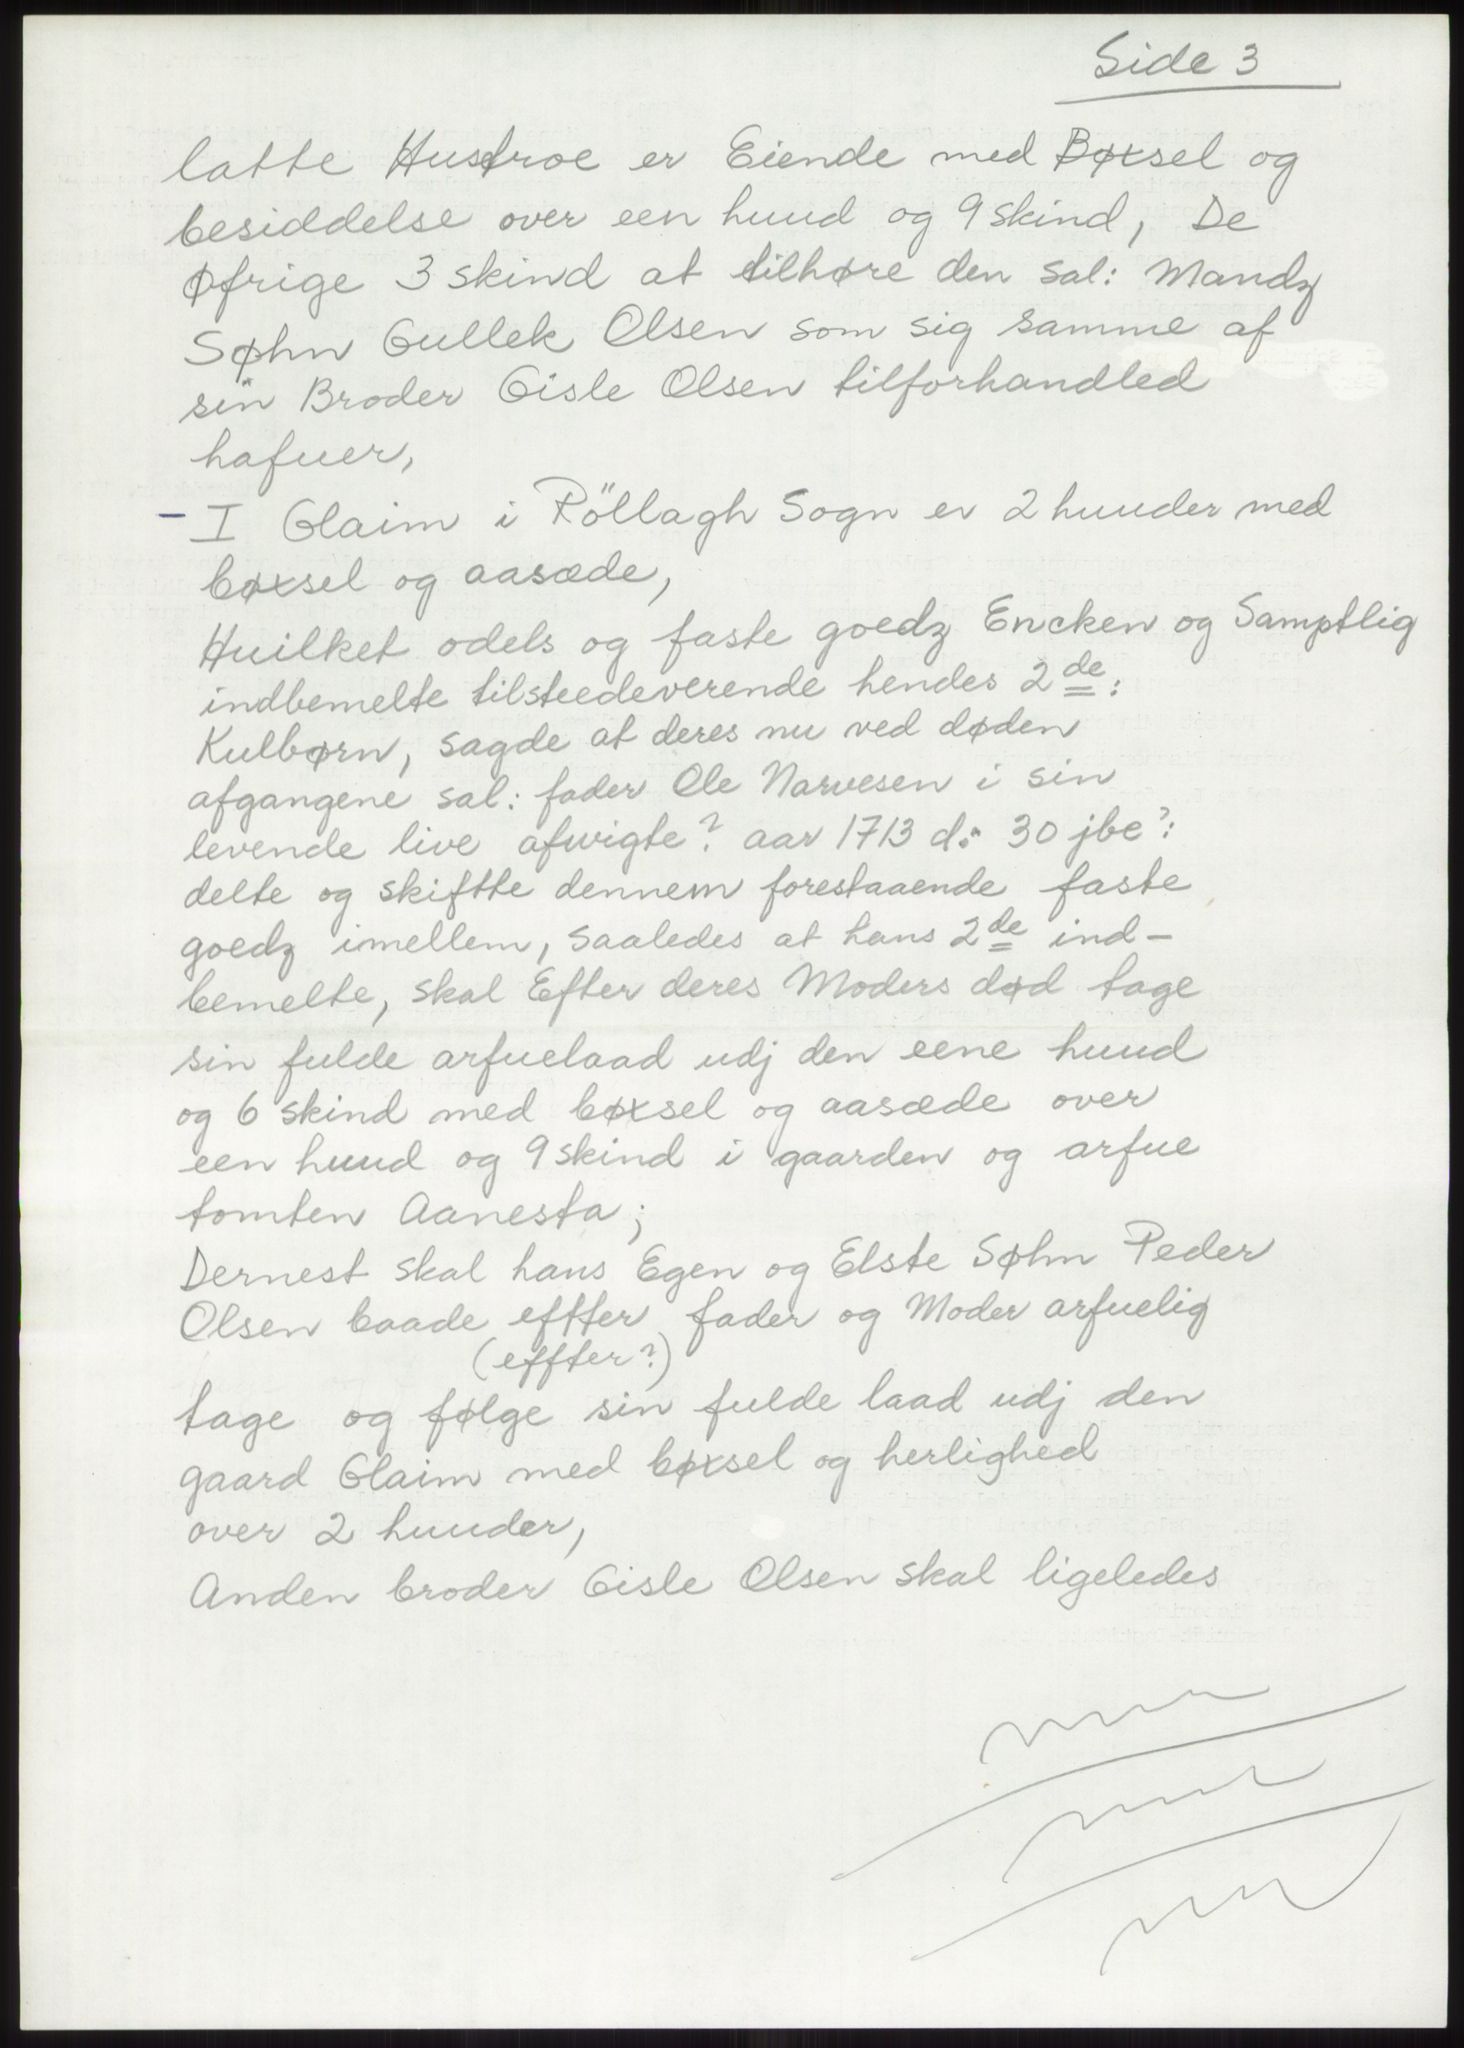 Side 3
latte Hustroe er Eiende med Bøxsel og
besiddelse over een huud og 9 skind, De
øfrige 3 skind at tilhøre den sal: Mandz
Søhn Gullek Olsen som sig samme af
sin Broder Gisle Olsen tilforhandled
hafuer,
- I Glaim i Röllagh Sogn er 2 huuder med
bøxsel og aasæde,
Huilket odels og faste goedz Encken og Samptlig
indbemelte tilsteedeverende hendes 2de:
Kulbørn, sagde at deres nu ved døden
afgangene sal: fader Ole Narvesen i sin
levende live afvigte? aar 1713 d: 30 jbe?:
delte og skiftte dennem forestaaende faste
goedz imellem, saaledes at hans 2de ind-
bemelte, skal Efter deres Moders død tage
sin fulde arfuelaad udj den eene huud
og 6 skind med bøxsel og aasæde over
een huud og 9 skind i gaarden og arfue
tomten Aanesta;
Dernest skal hans Egen og Elste Søhn Peder
Olsen baade effter fader og Moder arfuelig
(effter?)
tage og følge sin fulde laad udj den
gaard Glaim med bøxsel og herlighed
over 2 huuder,
Anden broder Gisle Olsen skal ligeledes